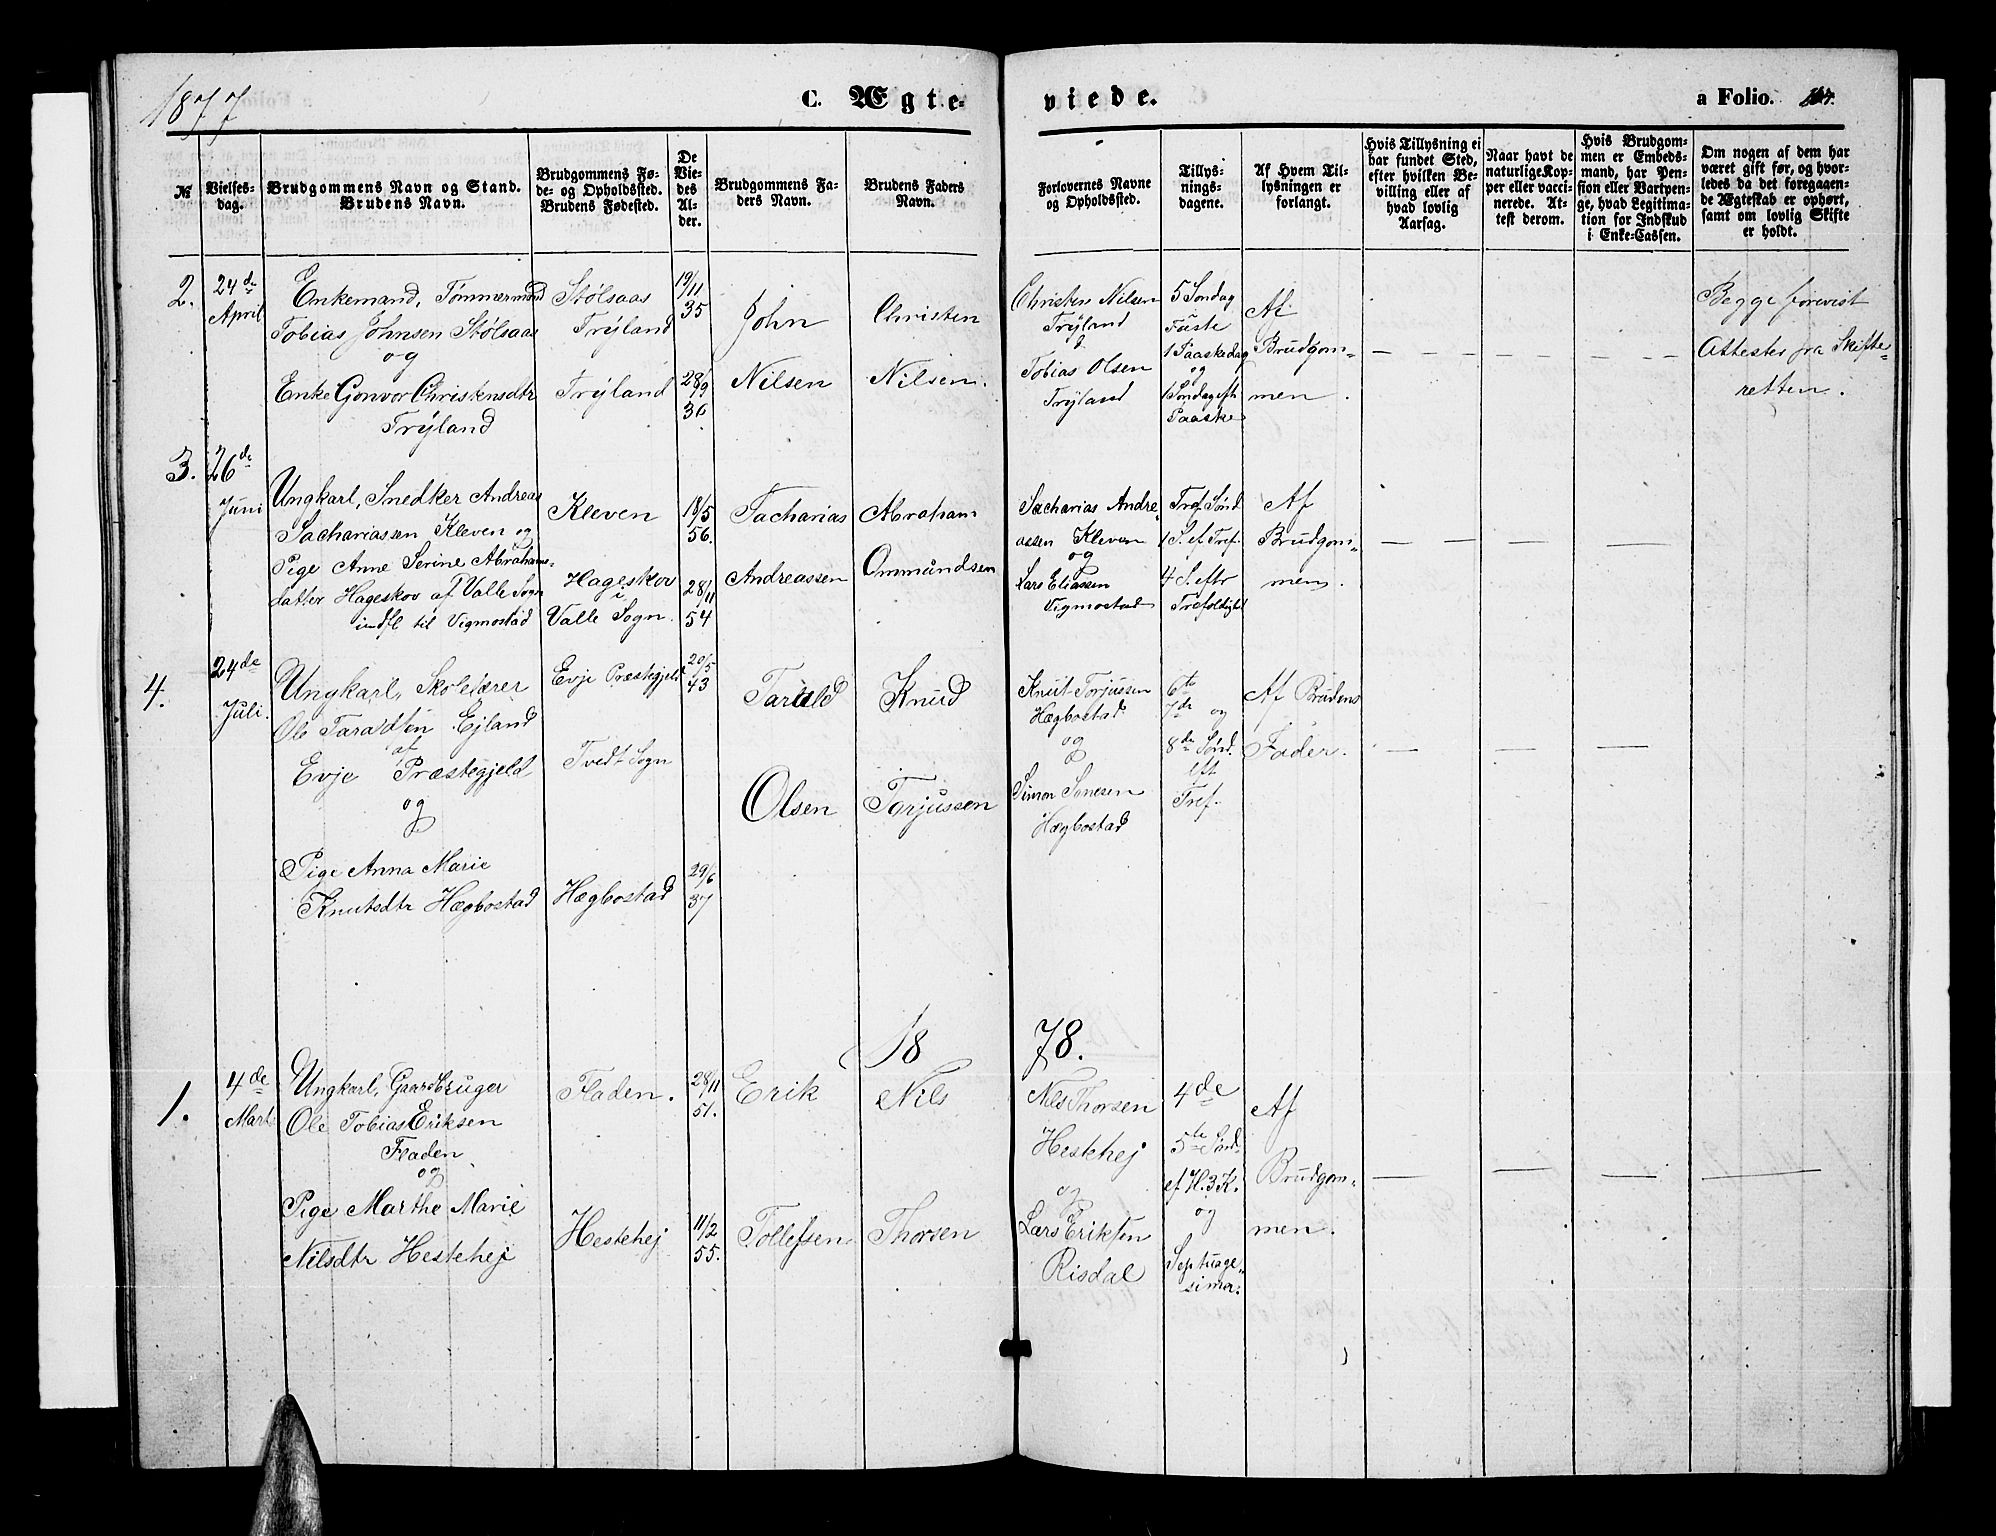 1877
C. Ægte-
viede.
a Folio.
№
Vielses-
dag.
Brudgommens Navn og Stand.
Brudens Navn.
Brudgommens Fø-
de- og Opholdssted.
Brudens Fødested.
De
Vie-
des
Al-
der.
Brudgommens Fa-
ders Navn.
Brudens Faders
Navn.
Forlovernes Navne
og Opholdssted.
Tillys-
nings-
dagene.
Af Hvem Til-
lysningen er
forlangt.
Hvis Tillysning ei
har fundet Sted,
efter hvilken Be-
villing eller af
hvad lovlig
Aarsag.
Naar havt de
naturlige Kop-
per eller vacci-
nerede. At-
test derom.
Hvis Brudgom-
men er Embeds-
mand, har Pen-
sion eller Vartpen-
ge, hvad Legitima-
tion for Indskud
i Enke-Cassen.
Om nogen af dem har
været gift før, og hvor-
ledes da det foregaaen-
de Ægteskab er ophørt,
samt om lovlig Skifte
er holdt.
2.
24de
April
Enkemand, Tømmermand
Tobias Johnsen Stølsaas
og
Enke Gonvor Christensdtr
Trÿland
Stølsaas
Trÿland
Trÿland
19/11
35
28/9
36
John
Nilsen
Christen
Nilsen.
Christen Nilsen
Trÿland
Tobias Olsen
Trÿland
5 Søndag
Faste
1 Paaskedag
og
1 Søndag eft
Paaske
Af
Brudgom-
men.
Begge forevist
Attester fra Skifte-
retten.
3.
26de
Juni
Ungkarl, Snedker Andreas
Sachariassen Kleven og
Pige Anne Serine Abrahams-
datter Hageskov af Valle Sogn
indfl til Vigmostad
Kleven
Hageskov
i
Valle Sogn.
18/5
56.
28/11
54
Sacharias
Andreassen
Abraham
Ommundsen
Sacharias Andre-
assen Kleven
og
Lars Eliassen
Vigmostad
Tref. Sønd
1 S. ef. Tref.
4 S. eftr
Trefoldighet
Af
Brudgom-
men.
4.
24de
Juli.
Ungkarl, Skolelærer
Ole Taraldsen Ejland
af
Evje Præstegjeld
og
Pige Anna Marie
Knutsdtr Hægbostad
Evje Præstegjeld
Tvedt Sogn
Hægbostad
20/5
43
29/6
37
Tarald
Olsen
Knud
Torjussen
Knut Torjussen
Hægbostad
og
Simon Sonesen
Hægbostad
6te
7de og
8de Sønd.
eft
Tref.
Af Brudens
Fader.
18
78.
1.
4de
Marts
Ungkarl, Gaardbruger
Ole Tobias Eriksen
Fladen
og
Pige Marthe Marie
Nilsdtr Hestehej
Fladen.
Hestehej
28/11
51.
11/2
55.
Erik
Tollefsen
Nils
Thorsen
Nils Thorsen
Hestehej
og
Lars Eriksen
Risdal
4de
5te Sønd.
ef. H. 3 K.
og
Septuage-
sima.
Af
Brudgom-
men.